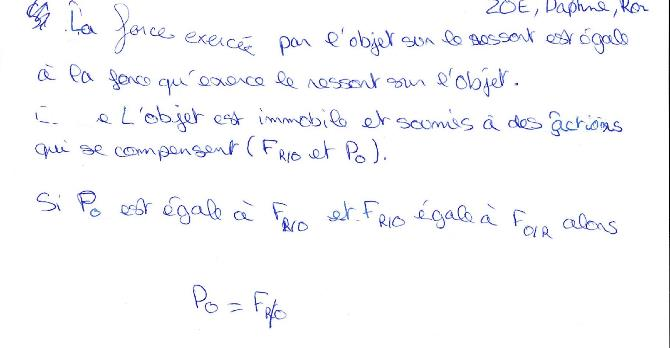 ZOE, Daphne,
La force exercée par l'objet sur le ressort est égale
à la force qu'exerce le ressort sur l'objet.
L'objet est immobile et soumis à des actions
qui se compensent (F R/O et Po).
Si Po est égale à F R/O et F R/O égale à F O/R alors
Po = F R/O